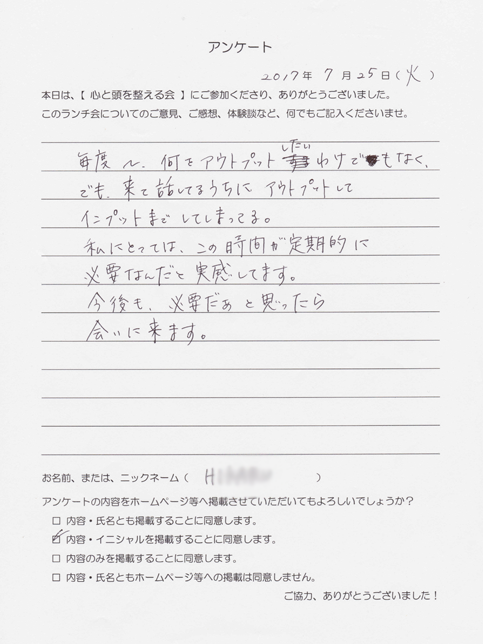 アンケート
2017年 7月 25日(火)
本日は、【 心と頭を整える会 】にご参加くださり、ありがとうございました。
このランチ会についてのご意見、ご感想、体験談など、何でもご記入くださいませ。
毎度 〜、何をアウトプットしたいわけでもなく、
でも、来て話してるうちに アウトプットして
インプットまでしてしまってる。
私にとっては、この時間が定期的に
必要なんだと実感してます。
今後も、必要だぁと思ったら
会いに来ます。
お名前、または、ニックネーム( H )
アンケートの内容をホームページ等へ掲載させていただいてもよろしいでしょうか?
□ 内容・氏名とも掲載することに同意します。
☑ 内容・イニシャルを掲載することに同意します。
□ 内容のみを掲載することに同意します。
□ 内容・氏名ともホームページ等への掲載は同意しません。
ご協力、ありがとうございました!